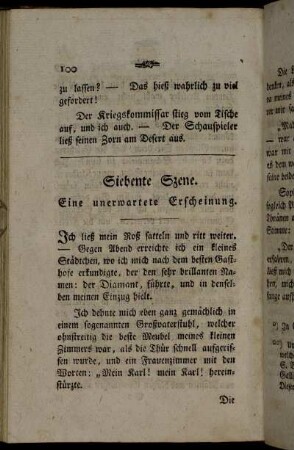 100
zu lassen? — Das hieß wahrlich zu viel
gefordert!
Der Kriegskommissar stieg vom Tische
auf, und ich auch. — Der Schauspieler
ließ seinen Zorn am Desert aus.
Siebente Szene.
Eine unerwartete Erscheinung.
Ich ließ mein Roß satteln und ritt weiter.
— Gegen Abend erreichte ich ein kleines
Städtchen, wo ich mich nach dem besten Gast-
hofe erkundigte, der den sehr brillanten Na-
men: der Diamant, führte, und in densel-
ben meinen Einzug hielt.
Ich dehnte mich eben ganz gemächlich in
einem sogenannten Großvaterstuhl, welcher
ohnstreitig die beste Meubel meines kleinen
Zimmers war, als die Thür schnell aufgeris-
sen wurde, und ein Frauenzimmer mit den
Worten: „Mein Karl! mein Karl! herein-
stürzte.
Die